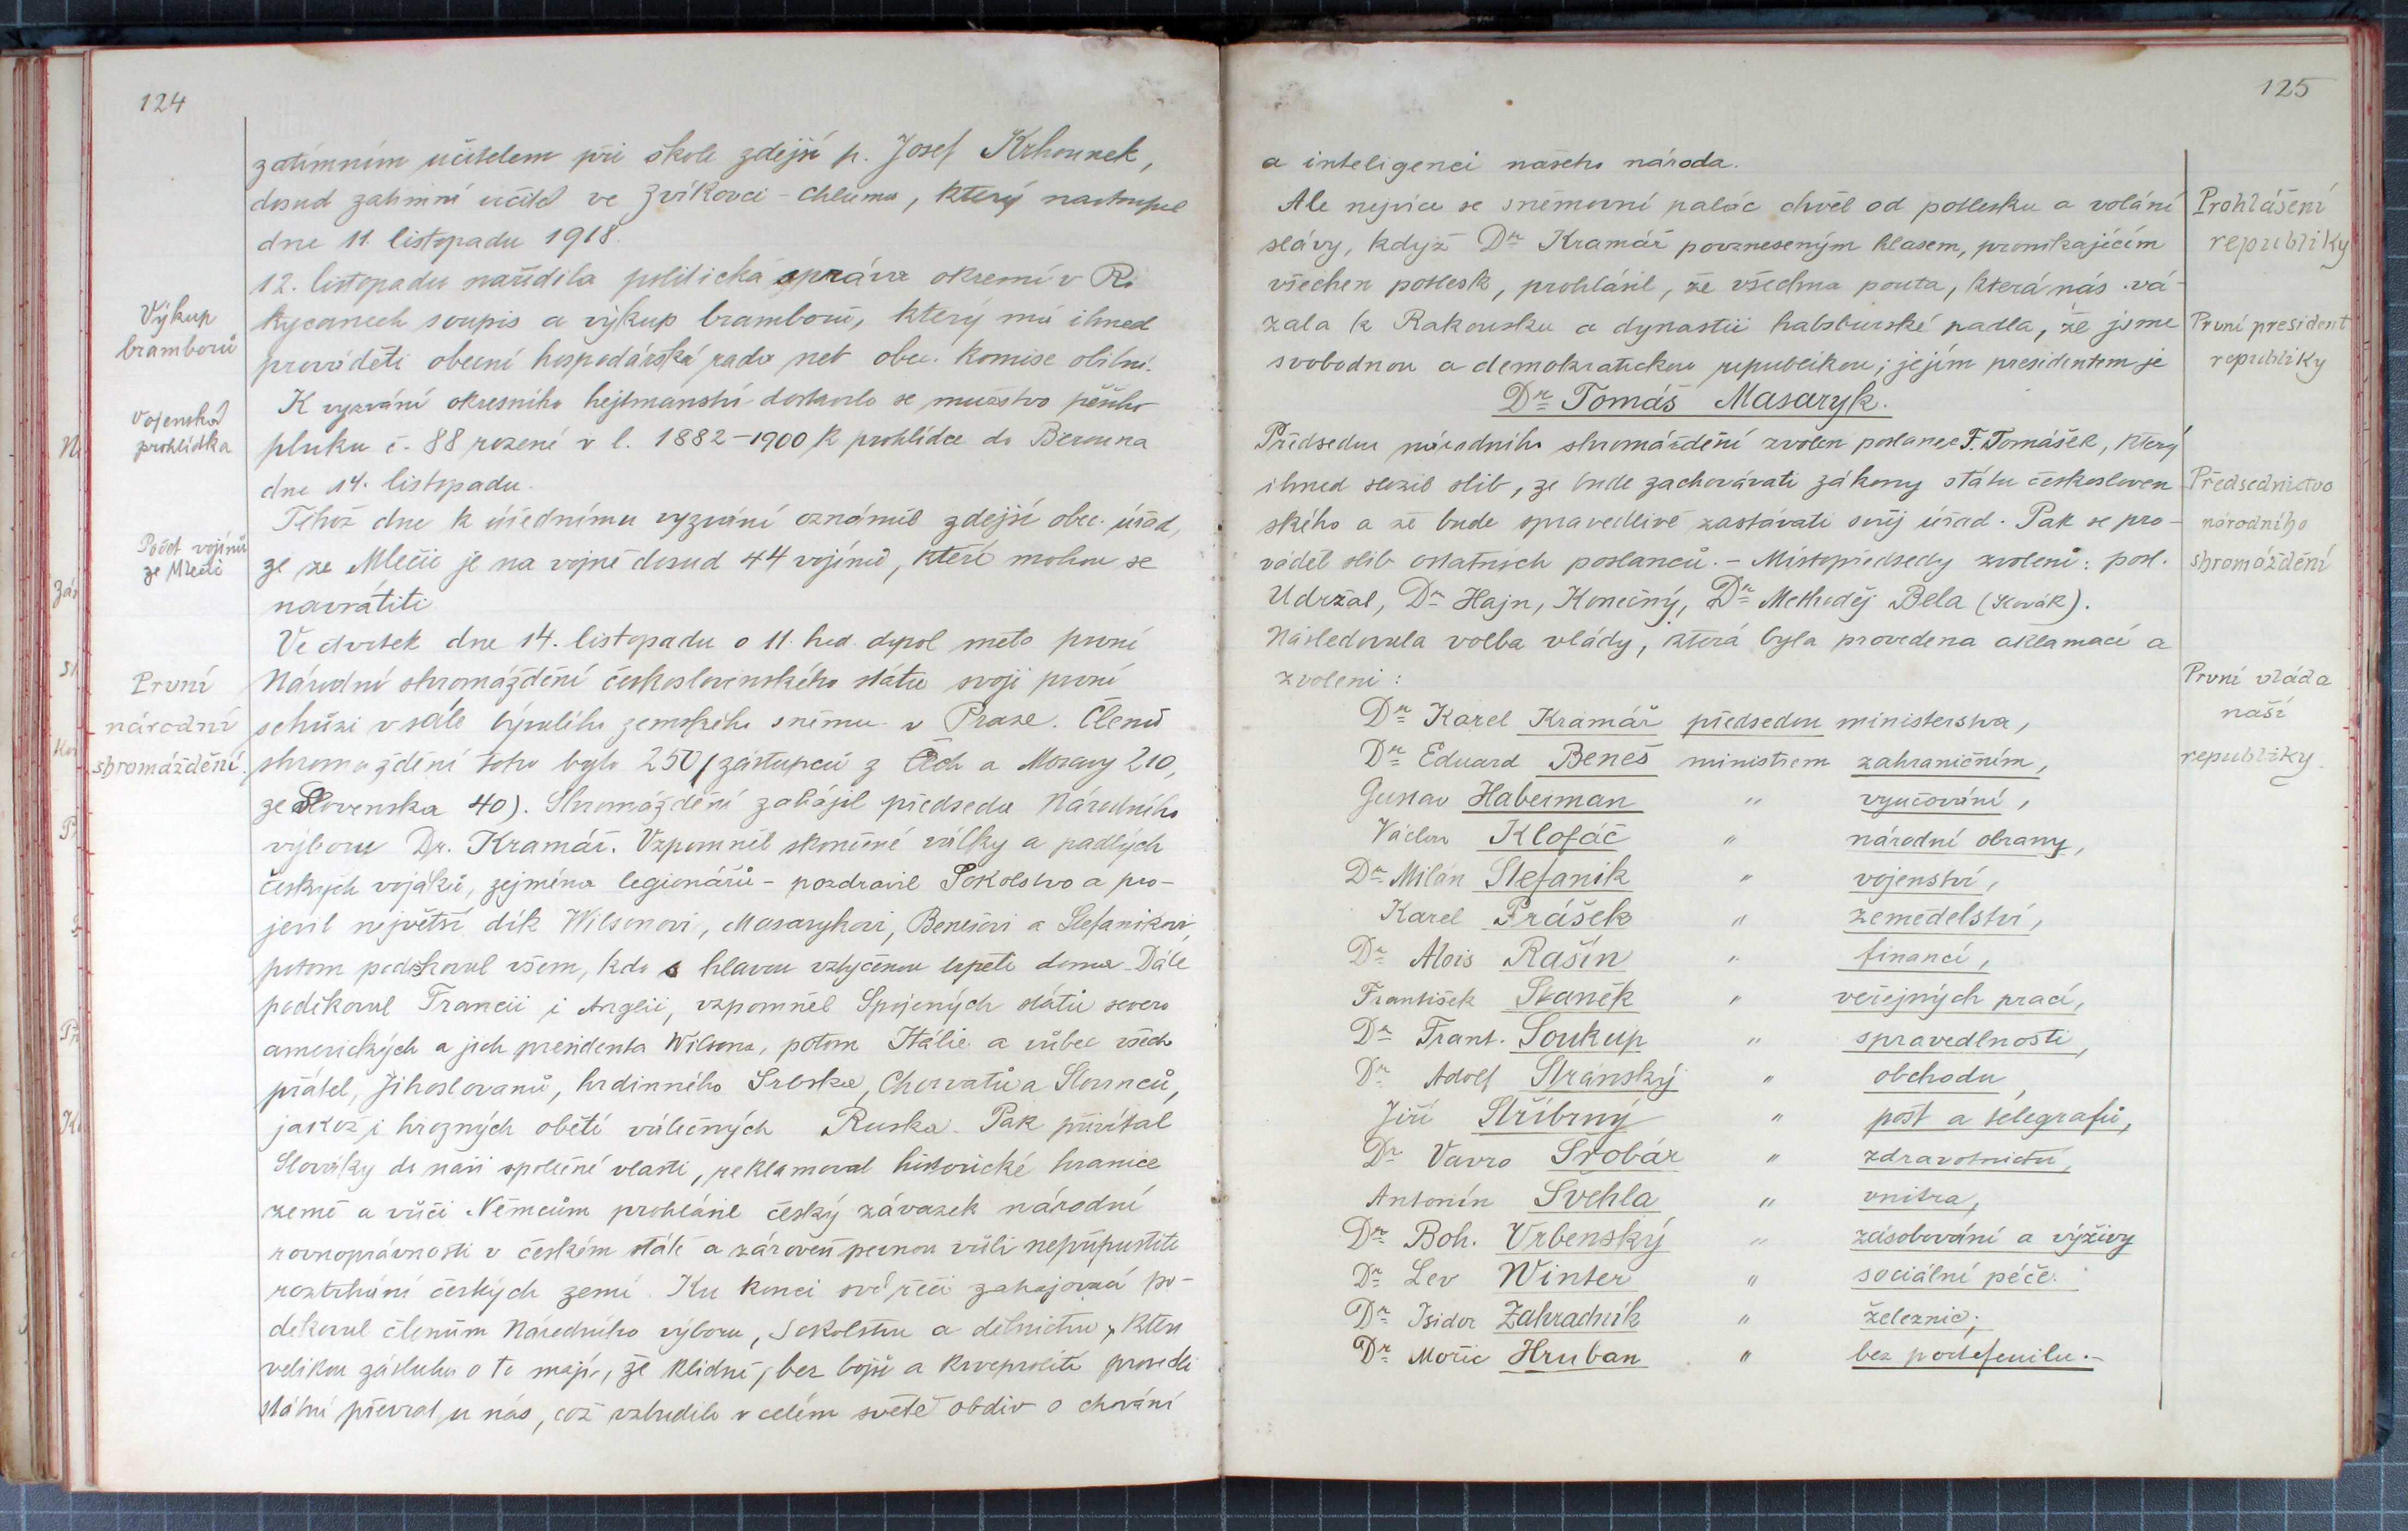 124
zatímním učitelem při škole zdejší p. Josef Krhounek,
dosud zatímní učitel ve Zvíkovci - Chlumu, který nastoupil
dne 11. listopadu 1918.
12. listopadu nařídila politická správa okresní v Ro
Výkup
bramborů
kycanech soupis a výkup bramborů, který má ihned
prováděti obecní hospodářská rada neb obec. komise obilní.
K vyzvání okresního hejtmanství dostavilo se mužstvo pěšího
Vojenská
prohlídka
pluku č. 88 rozené v l. 1882-1900 k prohlídce do Berouna
dne 14. listopadu.
Téhož dne k úřednímu vyzvání oznámil zdejší obec. úřad,
Počet vojínů
ze Mlečic
že ze Mlečic je na vojně dosud 44 vojínů, kteří mohou se
navrátiti
Ve čtvrtek dne 14. listopadu o 11. hod. dopol. mělo první
První
národní
shromáždění.
Národní shromáždění československého státu svoji první
schůzi v sále bývalého zemského sněmu v Praze. Členů
shromáždění toho bylo 250 (zástupců z Čech a Moravy 210,
ze Slovenska 40). Shromáždění zahájil předseda Národního
výboru Dr. Kramář. Vzpomněl skončené války a padlých
českých vojáků, zejména legionářů - pozdravil Sokolstvo a pro-
jevil největší dík Wilsonovi, Masarykovi, Benešovi a Štefanikovi,
potom poděkoval všem, kdo s hlavou vztyčenou trpěli doma. Dále
poděkoval Francii i Anglii, vzpomněl Spojených států severo
amerických a jich presidenta Wilsona, potom Itálie a vůbec všech
přátel, Jihoslovanů, hrdinného Srbska, Chorvatů a Slovinců,
jakož i hrozných obětí válečných Ruska. Pak přivítal
Slováky do naší společné vlasti, reklamoval historické hranice
země a vůči Němcům prohlásil český závazek národní
rovnoprávnosti v českém státě a zároveň pevnou vůli nepřipustiti
roztrhání českých zemí. Ku konci své řeči zahajovací po-
děkoval členům Národního výboru, Sokolstvu a dělnictvu, kteří
velikou zásluhu o to mají, že klidně, bez bojů a krveprolití provedli
státní převrat u nás, což vzbudilo v celém světě obdiv o chování
125
a inteligenci našeho národa.
Prohlášení
republiky
Ale nejvíce se sněmovní palác chvěl od potlesku a volání
slávy, když Dr Kramář povzneseným hlasem, pronikajícím
všechen potlesk, prohlásil, že všechna pouta, která nás vá-
První president
republiky
zala k Rakousku a dynastii habsburské padla, že jsme
svobodnou a demokratickou republikou; jejím presidentem je
Dr Tomáš Masaryk.
Předsedou národního shromáždění zvolen poslanec F. Tomášek, který
Předsednictvo
národního
shromáždění
ihned složil slib, že bude zachovávati zákony státu českosloven
ského a že bude spravedlivě zastávati svůj úřad. Pak se pro-
váděl slib ostatních poslanců. - Místopředsedy zvoleni: posl.
Udržal, Dr Hajn, Konečný, Dr Methoděj Bela (Slovák).
Následovala volba vlády, která byla provedena aklamací a
První vláda
naší
republiky.
zvoleni:
Dr Karel Kramář předsedou ministerstva,
Dr Eduard Beneš ministrem zahraničním,
Gustav Haberman " vyučování,
Václav Klofáč " národní obrany,
Dr Milán Stefanik " vojenství,
Karel Prášek " zemědelství,
Dr Alois Rašín " financí,
František Staněk " veřejných prací,
Dr Frant. Soukup " spravedlnosti,
Dr Adolf Stránský " obchodu,
Jiří Stříbrný " pošt a telegrafů,
Dr Vavro Šrobár " zdravotnictví,
Antonín Švehla " vnitra,
Dr Boh. Vrbenský " zásobování a výživy
Dr Lev Winter " sociální péče.
Dr Isidor Zahradník " železnic;
Dr Mořic Hruban " bez portefeuilu.-